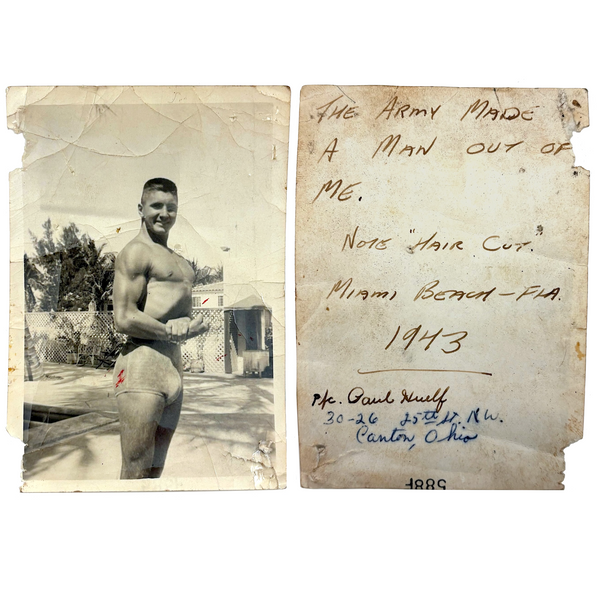 THE ARMY MADE
A MAN OUT OF
ME.
NOTE "HAIR CUT."
MIAMI BEACH - FLA.
1943
Pfc. Paul Huelf
30-26 25th St. N.W.
Canton, Ohio
588F